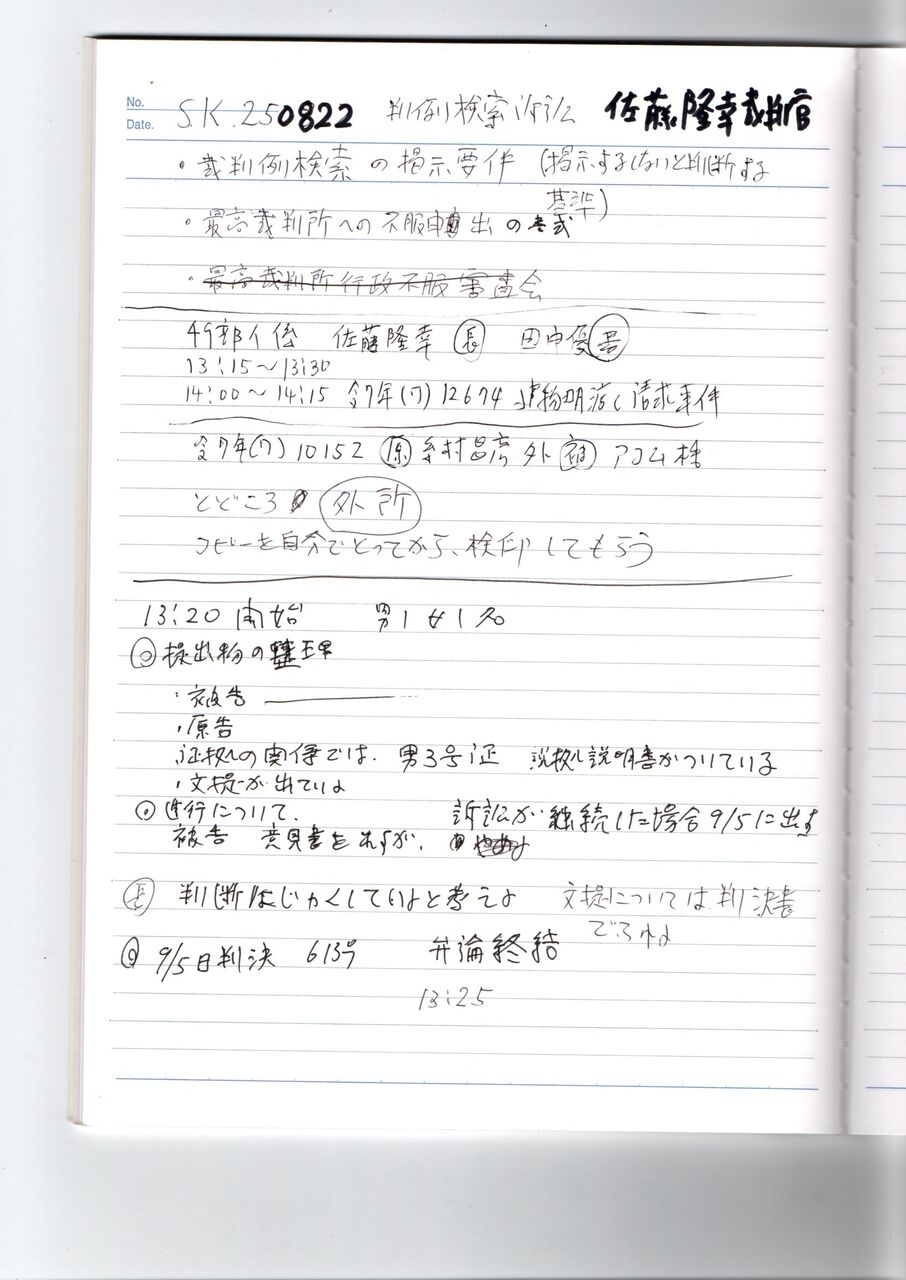 No.
Date.
S.K.250822 判例検索 佐藤隆幸裁判官
・裁判例検索の掲示要件 (掲示するしないと判断する
基準)
・最高裁判所への不服申出の書式
・最高裁判所行政不服審査会
49部イ係 佐藤隆幸 長 田中優 書
13:15〜13:30
14:00〜14:15 令7年(ワ)12674 建物明渡し請求事件
令7年(ワ)10152 原 外 被 アコム株
とどころ 外所
コピーを自分でとってから、検印してもらう
13:20 開始 男1 女1名
◎提出物の整理
・被告
・原告
証拠の関係では、 3号証 証拠説明書がついている
・文提が出ている
◎進行について、 訴訟が継続した場合9/5に出す
被告 意見書を
長 判断はじかくしているよと考え 文提については判決書
◎ 9/5日判決 613号 弁論終結
13:25